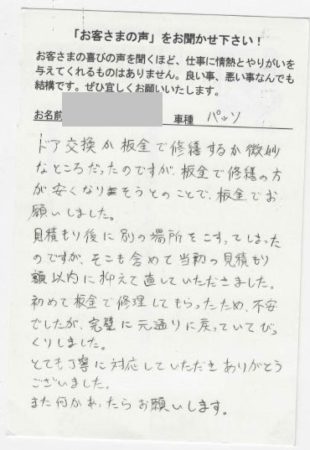 「お客さまの声」をお聞かせ下さい！
お客さまの喜びの声を聞くほど、仕事に情熱とやりがいを
与えてくれるものはありません。良い事、悪い事なんでも
結構です。ぜひ宜しくお願いいたします。
お名前 車種 パッソ
ドア交換か板金で修繕するか微妙
なところだったのですが、板金で修繕の方
が安くなりそうとのことで、板金でお
願いしました。
見積もり後に別の場所をこすってしまった
のですが、そこも含めて当初の見積もり
額以内に抑えて直していただきました。
初めて板金で修理してもらったため、不安
でしたが、完璧に元通りに戻っていてびっ
くりしました。
とても丁寧に対応していただきありがとう
ございました。
また何かあったらお願いします。